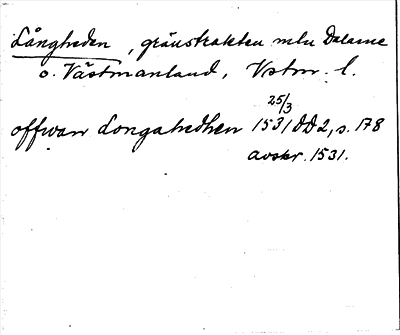 Långheden, gränstrakten mln Dalarne
o. Västmanland, Vstm. l.
25/3
offwan Longahedhen 1531 DD2, s. 178
avskr. 1531.